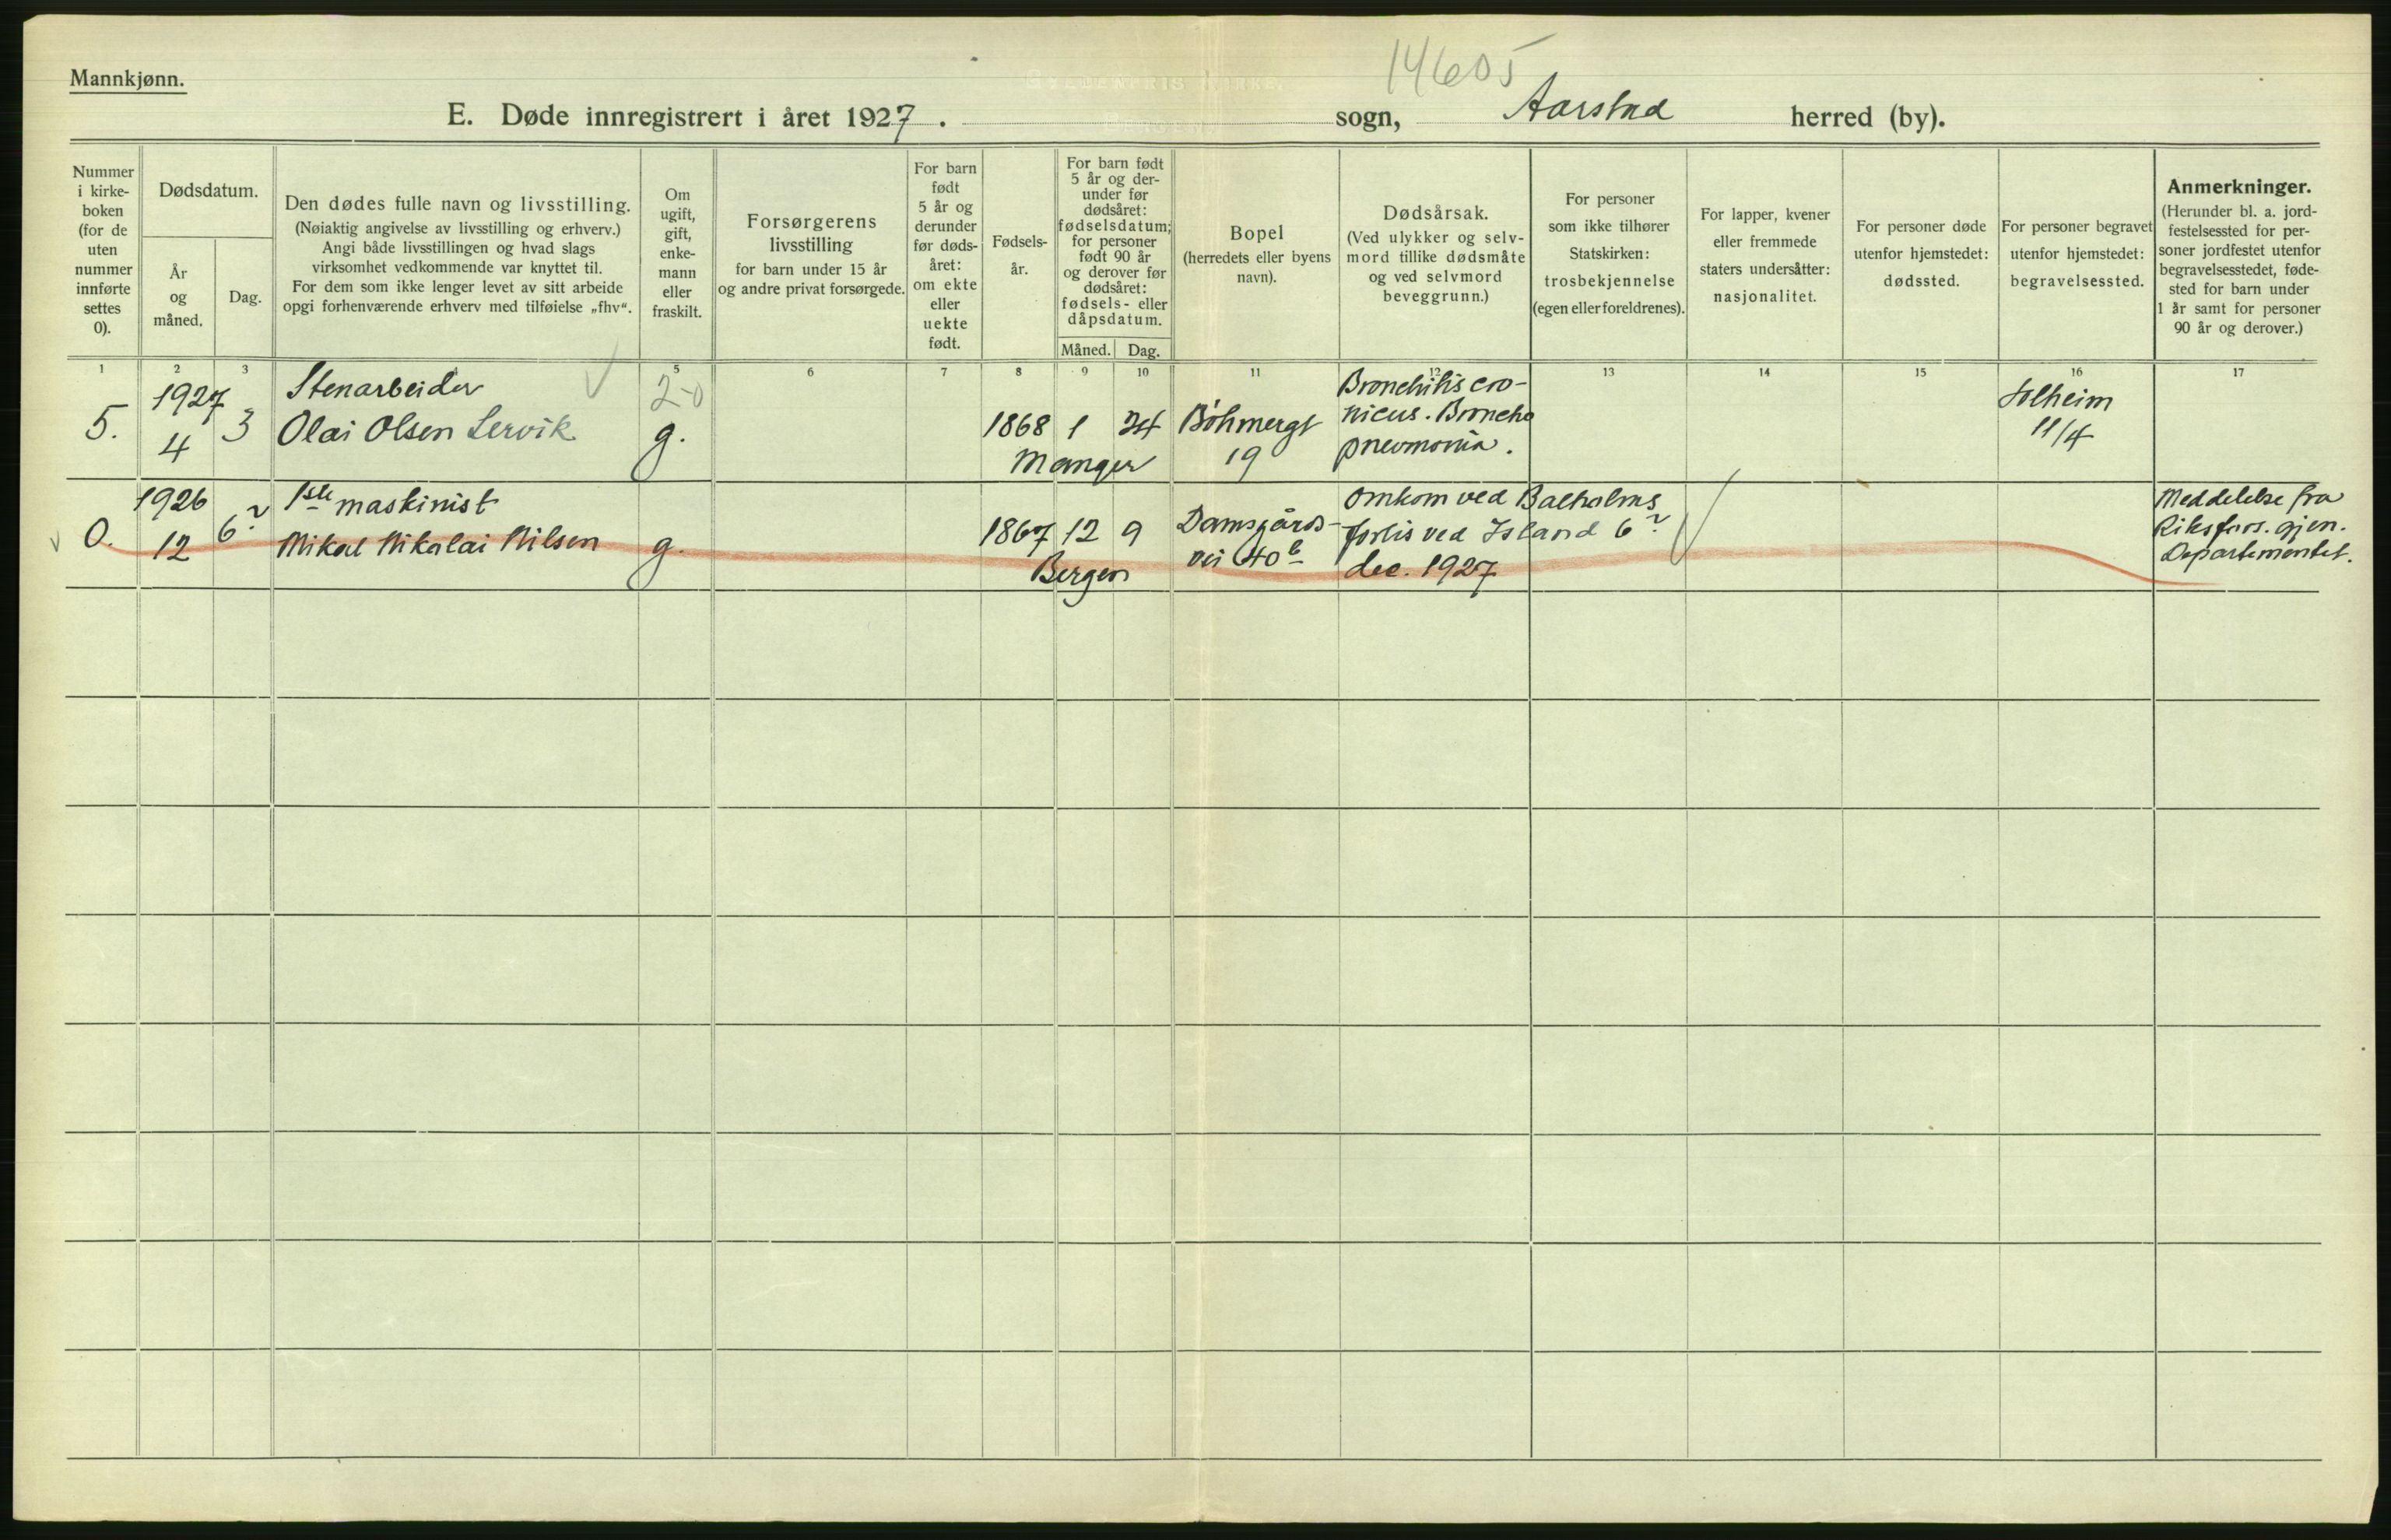 14605
Mannkjønn.
E. Døde innregistrert i året 1927. sogn, Aarstad herred (by).
Nummer
i kirke-
boken
(for de
uten
nummer
innførte
settes
0).
Dødsdatum.
År
og
måned.
Dag.
Den dødes fulle navn og livsstilling.
(Nøiaktig angivelse av livsstilling og erhverv.)
Angi både livsstillingen og hvad slags
virksomhet vedkommende var knyttet til.
For dem som ikke lenger levet av sitt arbeide
opgi forhenværende erhverv med tilføielse „fhv“.
Om
ugift,
gift,
enke-
mann
eller
fraskilt.
Forsørgerens
livsstilling
for barn under 15 år
og andre privat forsørgede.
For barn
født
5 år og
derunder
før døds-
året:
om ekte
eller
uekte
født.
Fødsels-
år.
For barn født
5 år og der-
under før
dødsåret:
fødselsdatum;
for personer
født 90 år
og derover før
dødsåret:
fødsels- eller
dåpsdatum.
Måned. Dag.
Bopel
(herredets eller byens
navn).
Dødsårsak.
(Ved ulykker og selv-
mord tillike dødsmåte
og ved selvmord
beveggrunn.)
For personer
som ikke tilhører
Statskirken:
trosbekjennelse
(egen eller foreldrenes).
For lapper, kvener
eller fremmede
staters undersåtter:
nasjonalitet.
For personer døde
utenfor hjemstedet:
dødssted.
For personer begravet
utenfor hjemstedet:
begravelsessted.
Anmerkninger.
(Herunder bl. a. jord-
festelsessted for per-
soner jordfestet utenfor
begravelsesstedet, føde-
sted for barn under
1 år samt for personer
90 år og derover.)
1 2 3 5 6 7 8 9 10 11 12 13 14 15 16 17
5.
1927
4
3
Stenarbeider
Olai Olsen Lervik
2-0
g.
1868 1 24
Manger
Böhmergt
19
Bronchitis cro-
nicus. Broncho
pneumonia.
Solheim
11/4
0.
1926
12
6
1ste maskinist
Mikal Nikolai Nilsen
g.
1867 12 9
Bergen
Damsgårds-
vei 40b
Omkom ved Balholms
forlis ved Island 6
dec. 1927
Meddelelse fra
Riksfors. gjen.
Departementet.